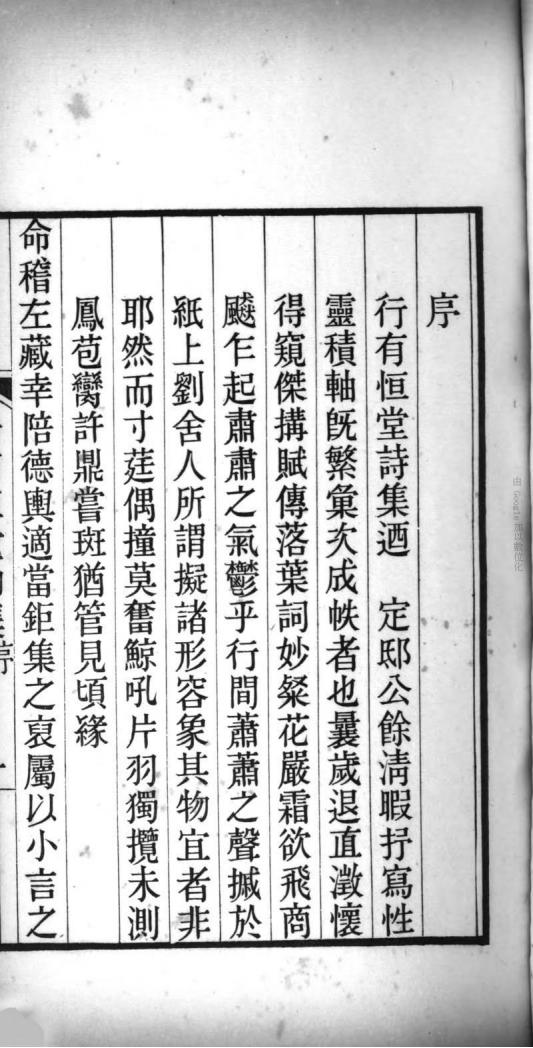 序
行有恒堂詩集迺　定邸公餘淸暇抒寫性
靈積軸旣繁彙次成帙者也曩歲退直澂懷
得窺傑搆賦傳落葉詞妙粲花嚴霜欲飛商
飈乍起肅肅之氣鬱乎行間蕭蕭之聲摵於
紙上劉舍人所謂擬諸形容象其物宜者非
耶然而寸莛偶撞莫奮鯨吼片羽獨攬未測
鳳苞臠許鼎嘗斑猶管見頃緣
命稽左藏幸陪德輿適當鉅集之裒屬以小言之
集序
由 Google 加以數位化